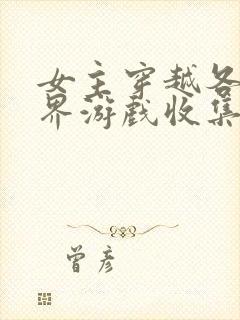 女主穿越各
界游戏收集
曾彦